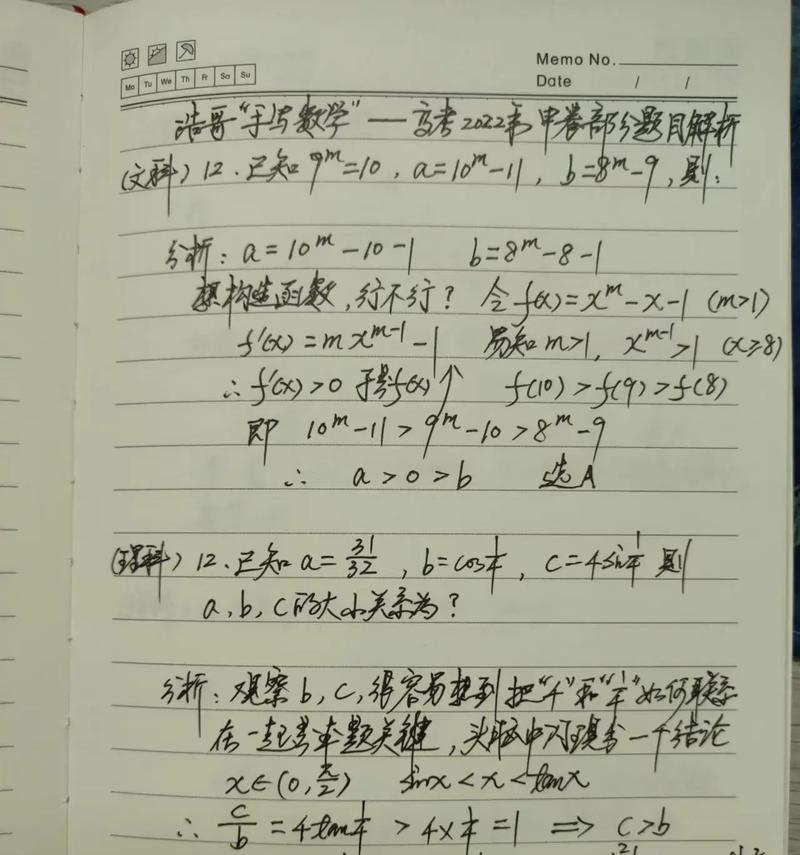 Memo No.
Mo Tu We Th Fr Sa Su
Date / /
浩哥“手写数学”—高考2022年甲卷部分题目解析
(文科) 12. 已知 9^m=10, a=10^m-11, b=8^m-9, 则:
分析: a=10^m-10-1 b=8^m-8-1
想构造函数, 行不行? 令 f(x)=x^m-x-1 (m>1)
f'(x)=mx^{m-1}-1 易知 m>1, x^{m-1}>1 (x≥8)
∴ f'(x)>0 于是f(x)↑ f(10)>f(9)>f(8)
即 10^m-11>9^m-10>8^m-9
∴ a>0>b 选A
(理科) 12. 已知 a=31/32, b=cos1/4, c=4sin1/4 则
a, b, c的大小关系为?
分析: 观察b, c, 很容易想到把“4”和“1/4”如何联系
在一起是本题关键, 头脑中闪现出一个结论
x∈(0, π/2) sinx<x<tanx
∴ c/b=4tan1/4>4×1/4=1 ⇒ c>b